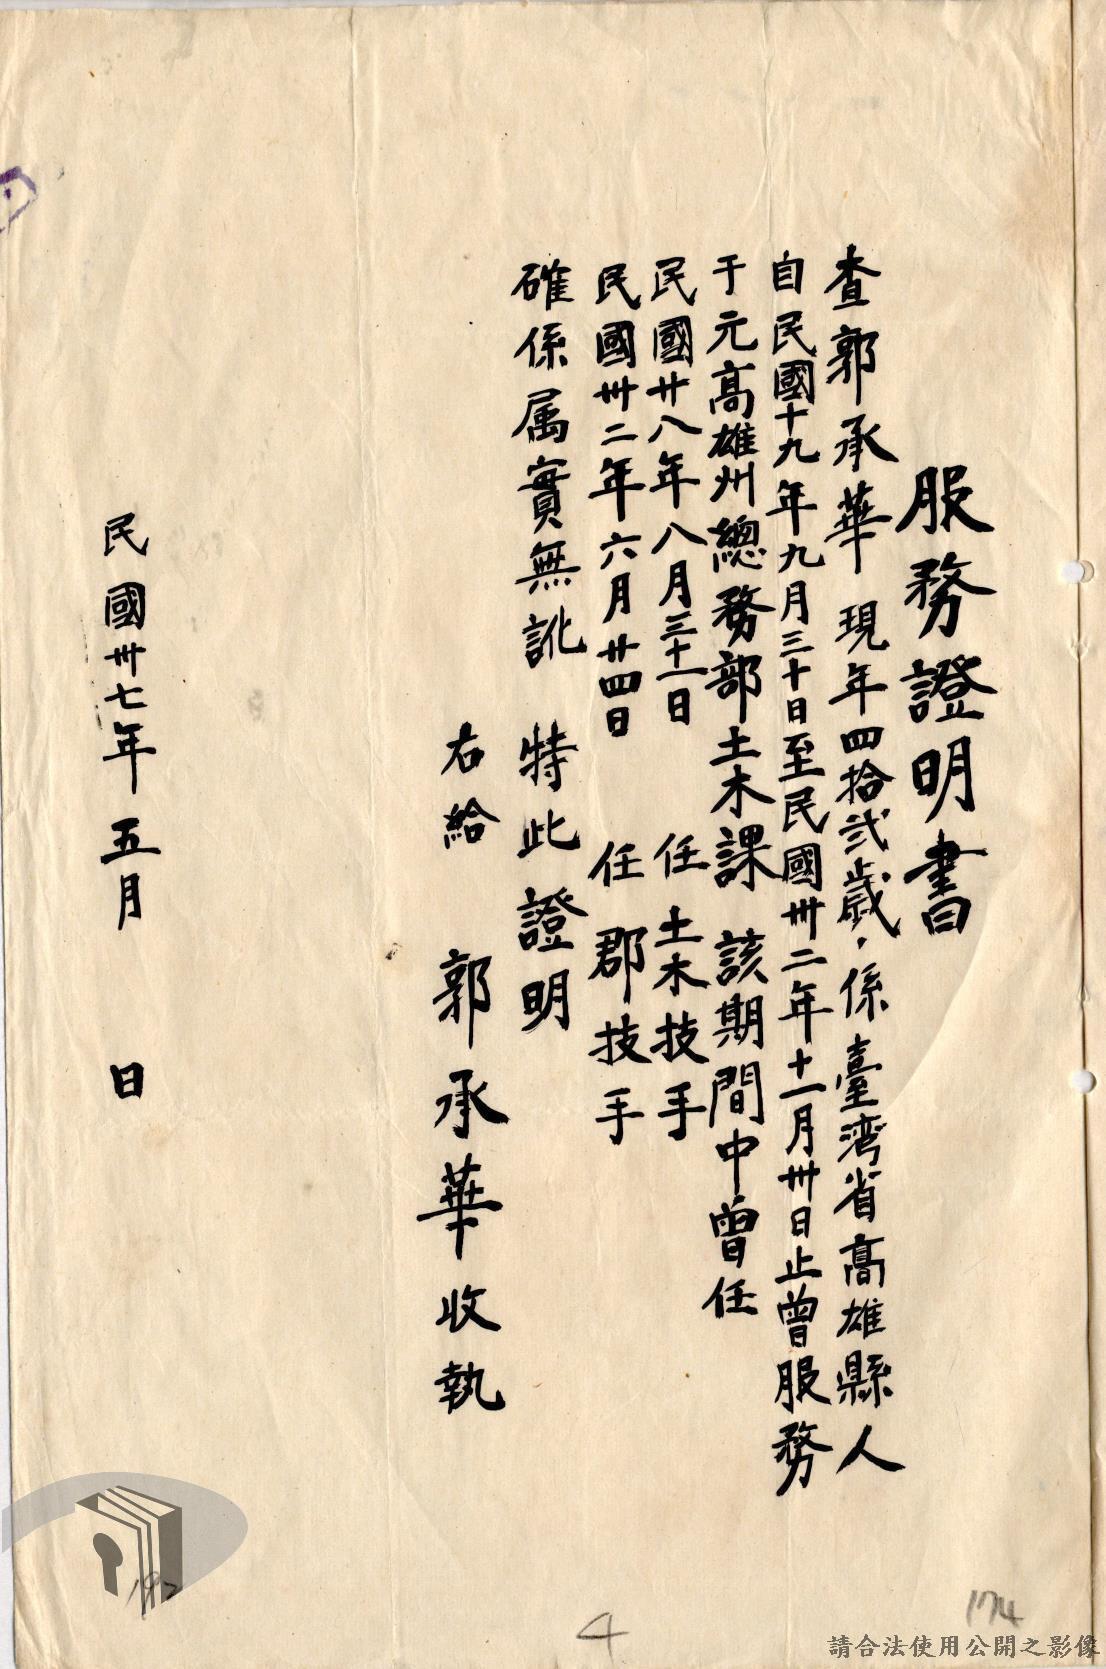 服務證明書
查郭承華 現年四拾弍歲，係臺灣省高雄縣人
自民國十九年九月三十日至民國卅二年十一月卅日止曾服務
于元高雄州總務部土木課 該期間中曾任
民國廿八年八月三十一日 任土木技手
民國卅二年六月廿四日 任郡技手
確係属實無訛 特此證明
右給 郭承華收執
民國卅七年 五月 日
4
174
請合法使用公開之影像